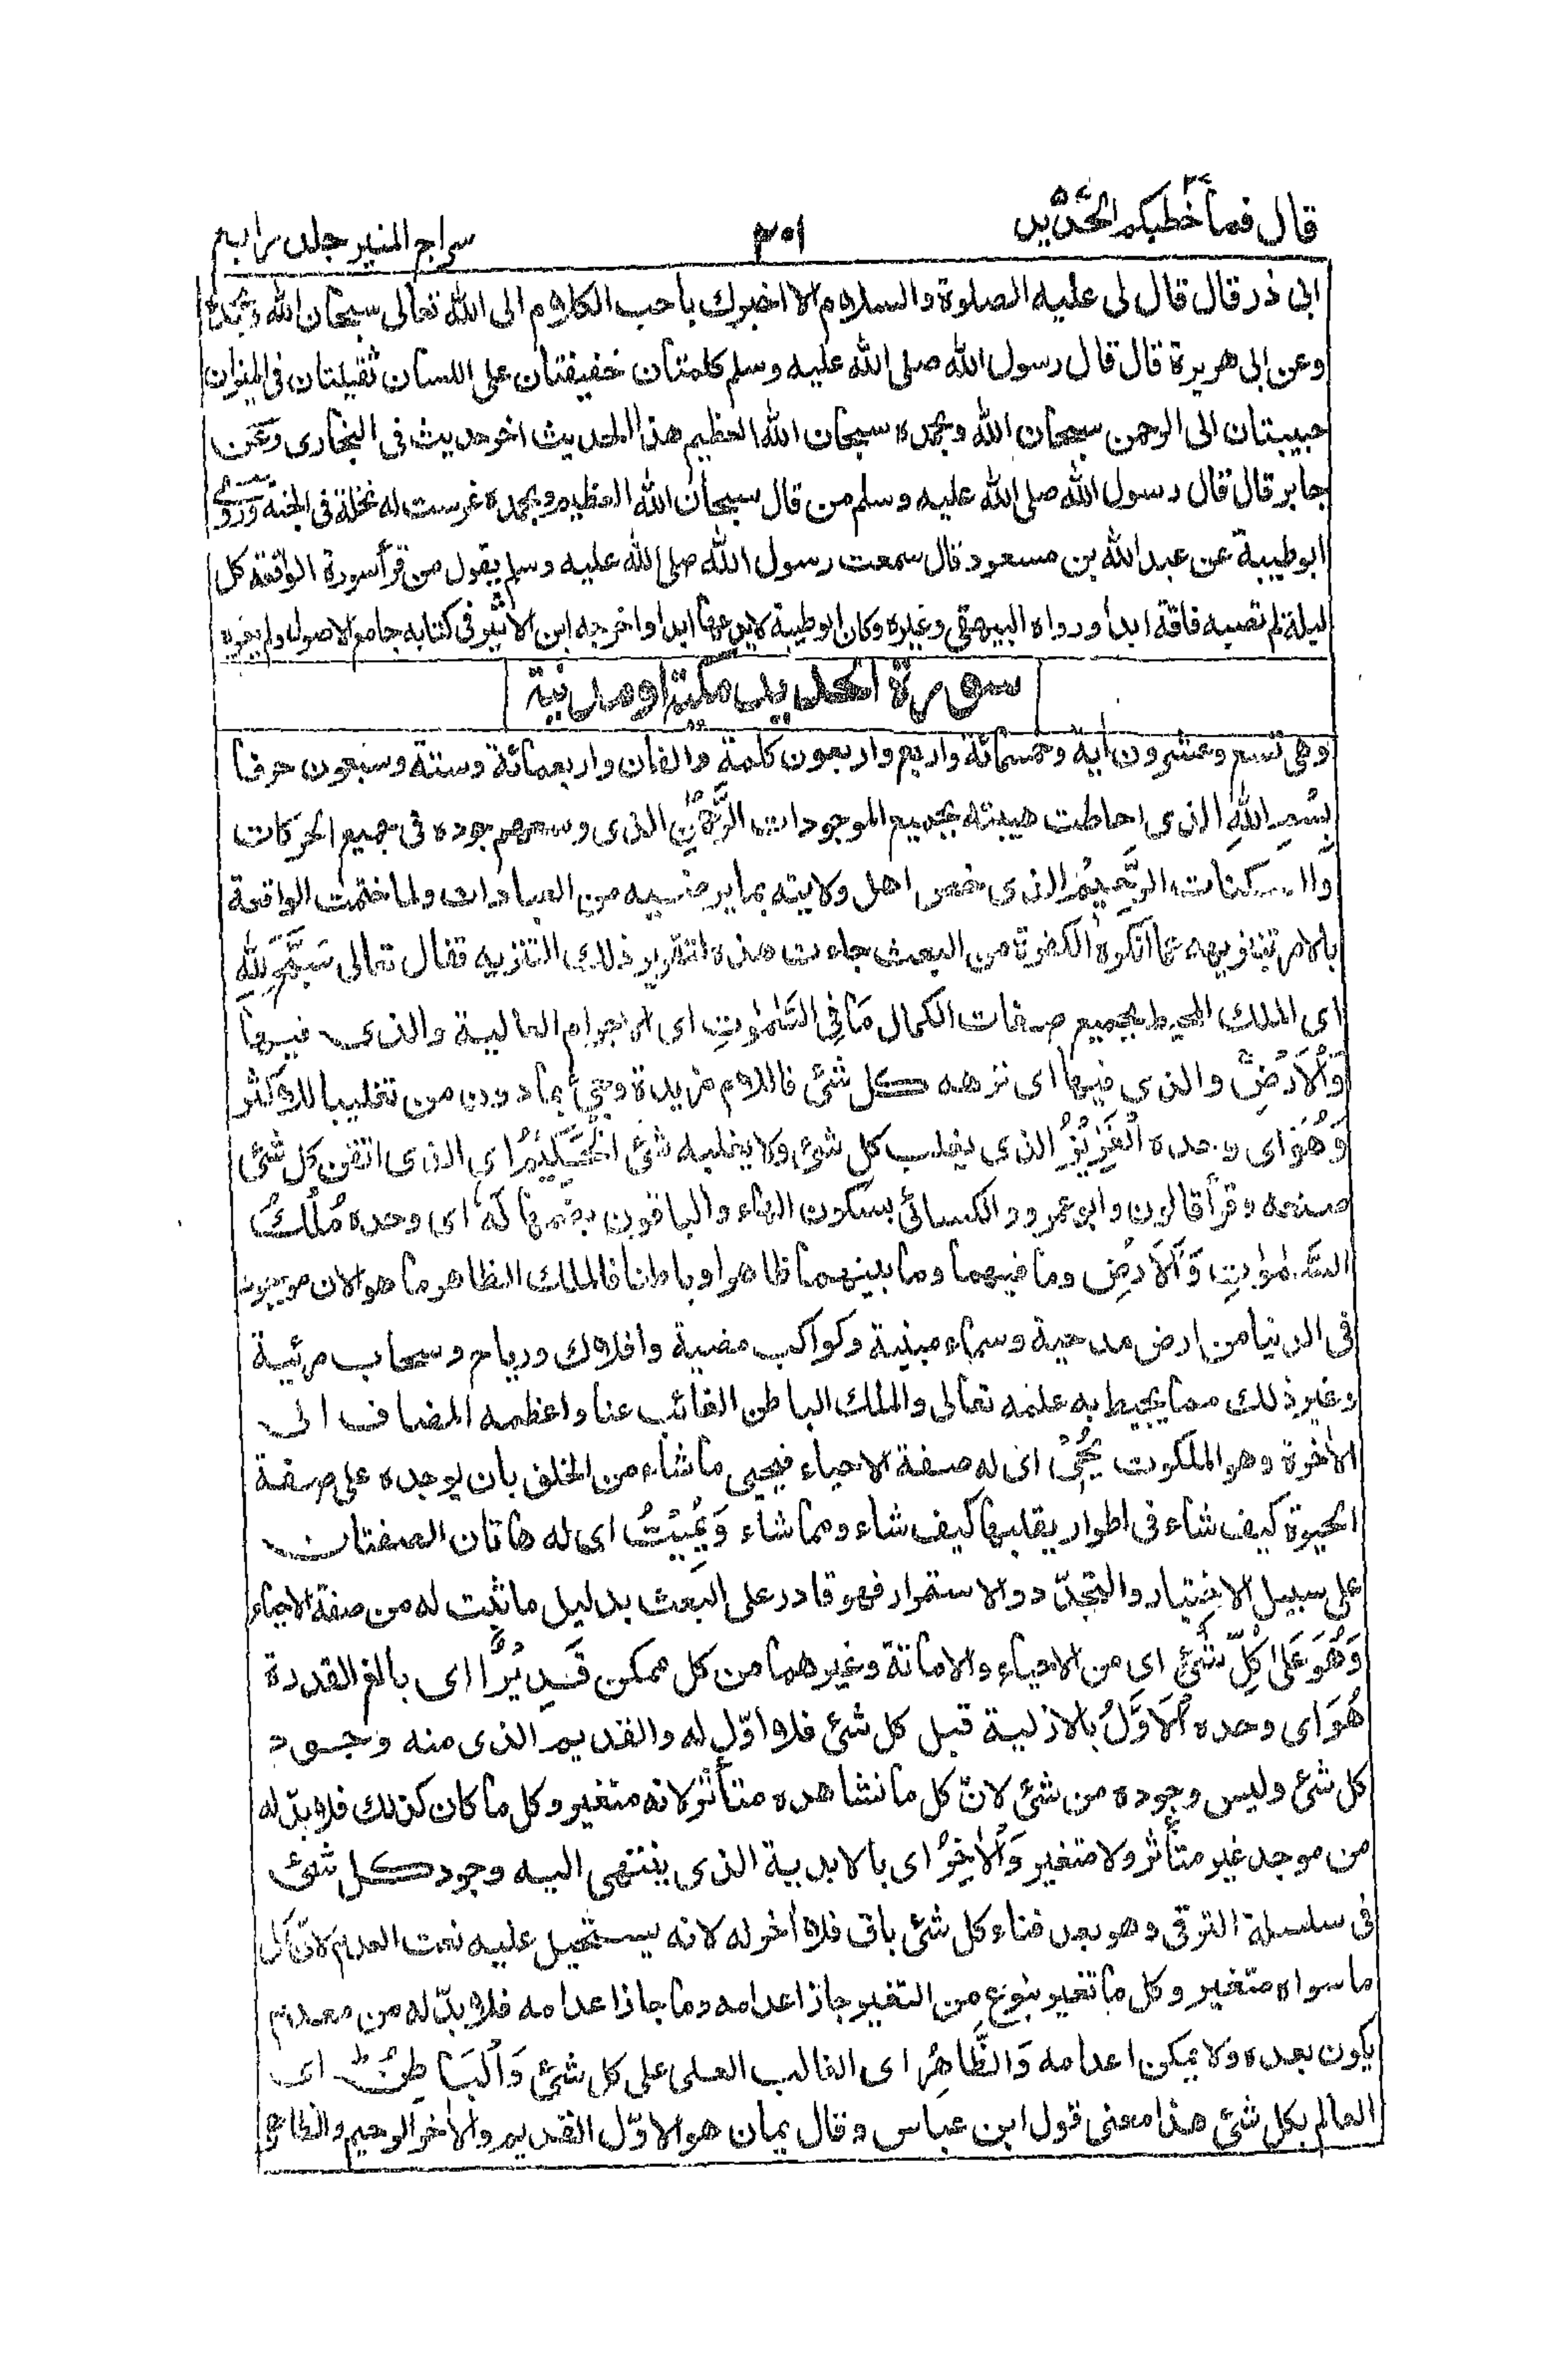 قال فما خطبكم الحديد
٢٠١
سراج المنير جلد رابع
ابى ذر قال قال لى عليه الصلوة والسلام الا اخبرك باحب الكلام الى الله تعالى سبحان الله وبحمده
وعن ابى هريرة قال قال رسول الله صلى الله عليه وسلم كلمتان خفيفتان على اللسان ثقيلتان فى الميزان
حبيبتان الى الرحمن سبحان الله وبحمده سبحان الله العظيم هذا الحديث اخر حديث فى البخارى وعن
جابر قال قال رسول الله صلى الله عليه وسلم من قال سبحان الله العظيم وبحمده غرست له نخلة فى الجنة وروى
ابو طيبة عن عبد الله بن مسعود قال سمعت رسول الله صلى الله عليه وسلم يقول من قرأ سورة الواقعة كل
ليلة لم تصبه فاقة ابدا ورواه البيهقى وغيره وكان ابو طيبة لا يدعها ابدا واخرجه ابن الاثير فى كتابه جامع الاصول ولم يعزه
سورة الحديد مكية او مدنية
وهى تسع وعشرون اية وخمسمائة واربع واربعون كلمة والفان واربعمائة وستة وسبعون حرفا
بِسْمِ اللهِ الذى احاطت هيبته بجميع الموجودات الرَّحْمٰنِ الذى وسعهم جوده فى جميع الحركات
والسكنات الرَّحِيْمِ الذى خص اهل ولايته بما يرضيه من العبادات ولما ختمت الواقعة
بالامر بتنزيهه عما انكره الكفرة من البعث جاءت هذه لتقرير ذلك التنزيه فقال تعالى سَبَّحَ لِلّٰهِ
اى الملك المحيط بجميع صفات الكمال مَا فِى السَّمٰوٰتِ اى الاجرام العالية والذى فيها
وَالْاَرْضِ والذى فيها اى نزهه كل شئ فاللام مزيدة وجئ بما دون من تغليبا للاكثر
وَهُوَ اى وحده الْعَزِيْزُ الذى يغلب كل شئ ولا يغلبه شئ الْحَكِيْمُ اى الذى اتقن كل شئ
صنعه وقرأ قالون وابو عمرو والكسائى بسكون الهاء والباقون بضمها لَهٗ اى وحده مُلْكُ
السَّمٰوٰتِ وَالْاَرْضِ وما فيهما وما بينهما ظاهرا وباطنا فالملك الظاهر ما هو الان موجود
فى الدنيا من ارض مدحية وسماء مبنية وكواكب مضية وافلاك ورياح وسحاب مرئية
وغير ذلك مما يحيط به علمه تعالى والملك الباطن الغائب عنا واعظمه المضاف الى
الاخرة وهو الملكوت يُحْيٖ اى له صفة الاحياء فيحيى ما شاء من الخلق بان يوجده على صفة
الحيوة كيف شاء فى اطوار يقلبها كيف شاء ومما شاء وَيُمِيْتُ اى له هاتان الصفتان
على سبيل الاختيار والتجدّد والاستمرار فهو قادر على البعث بدليل ما ثبت له من صفة الاحياء
وَهُوَ عَلٰى كُلِّ شَئٍ اى من الاحياء والاماتة وغيرهما من كل ممكن قَدِيْرٌ اى بالغ القدرة
هُوَ اى وحده الْاَوَّلُ بالازلية قبل كل شئ فلا اوّل له والقديم الذى منه وجود
كل شئ وليس وجوده من شئ لانّ كل ما نشاهده متأثر لانه متغير وكل ما كان كذلك فلا بدّ له
من موجد غير متأثر ولا متغير وَالْاٰخِرُ اى بالابدية الذى ينتهى اليه وجود كل شئ
فى سلسلة الترقى وهو بعد فناء كل شئ باق فلا أخر له لانه يستحيل عليه نعت العدم لانّ كل
ما سواه متغير وكل ما تغير بنوع من التغير جاز اعدامه وما جاز اعدامه فلا بدّ له من معدم
يكون بعده ولا يمكن اعدامه وَالظَّاهِرُ اى الغالب العلى على كل شئ وَالْبَاطِنُ اى
العالم بكل شئ هذا معنى قول ابن عباس وقال يمان هو الاوّل القديم والأخر الرحيم والظاهر